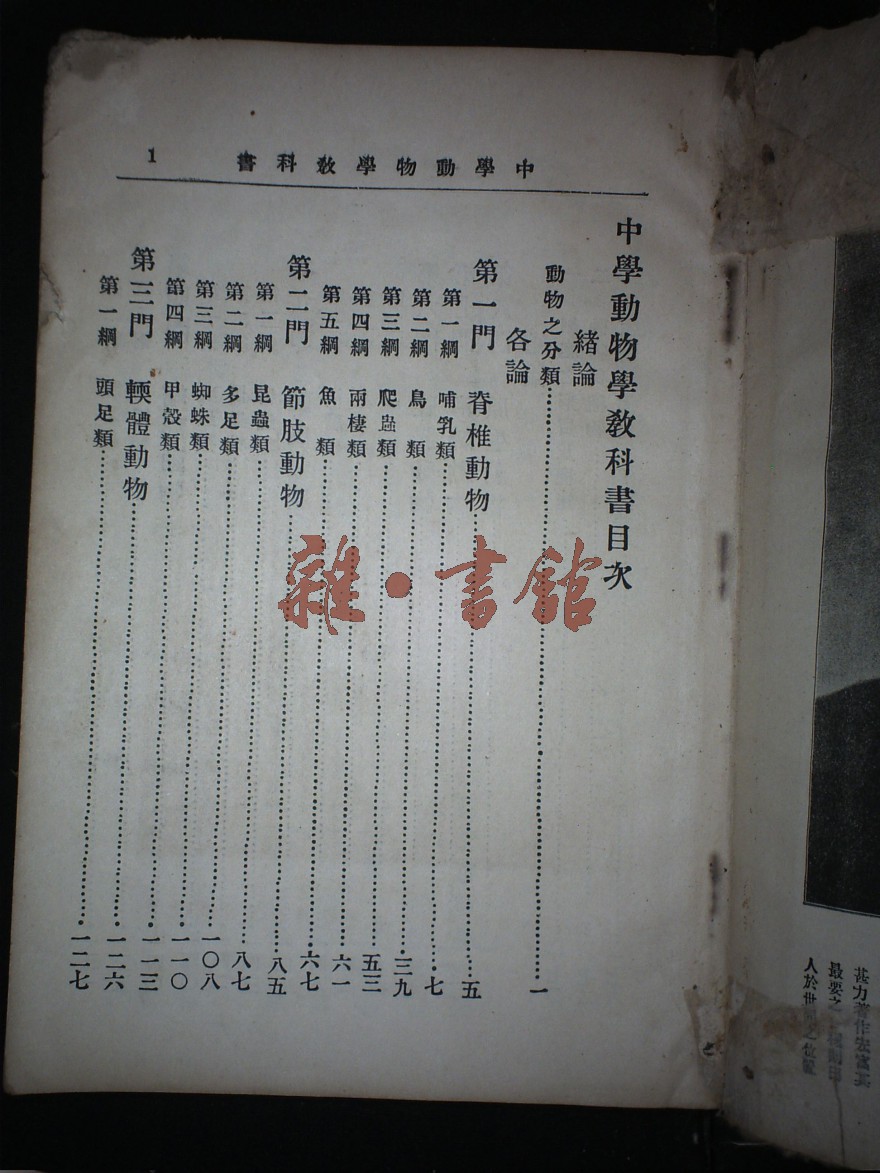 中學動物學敎科書 1
中學動物學敎科書目次
緒論
動物之分類……一
各論
第一門 脊椎動物……五
第一綱 哺乳類……七
第二綱 鳥類……三九
第三綱 爬蟲類……五三
第四綱 兩棲類……六一
第五綱 魚類……六七
第二門 節肢動物……八五
第一綱 昆蟲類……八七
第二綱 多足類……一〇八
第三綱 蜘蛛類……一一〇
第四綱 甲殼類……一一三
第三門 輭體動物……一二六
第一綱 頭足類……一二七
雜·書館
甚力著作宏富其
最要之
人於世